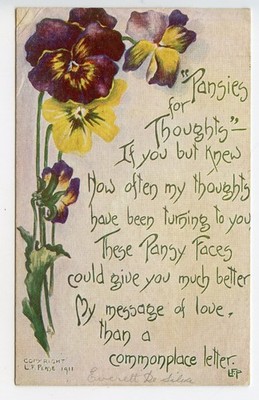 "Pansies
for
Thoughts"—
If you but knew
How often my thoughts
have been turning to you,
These Pansy Faces
could give you much better
My message of love.
than a
commonplace letter.
LFP
COPYRIGHT
L.F. PEASE 1911
Everett De Silva